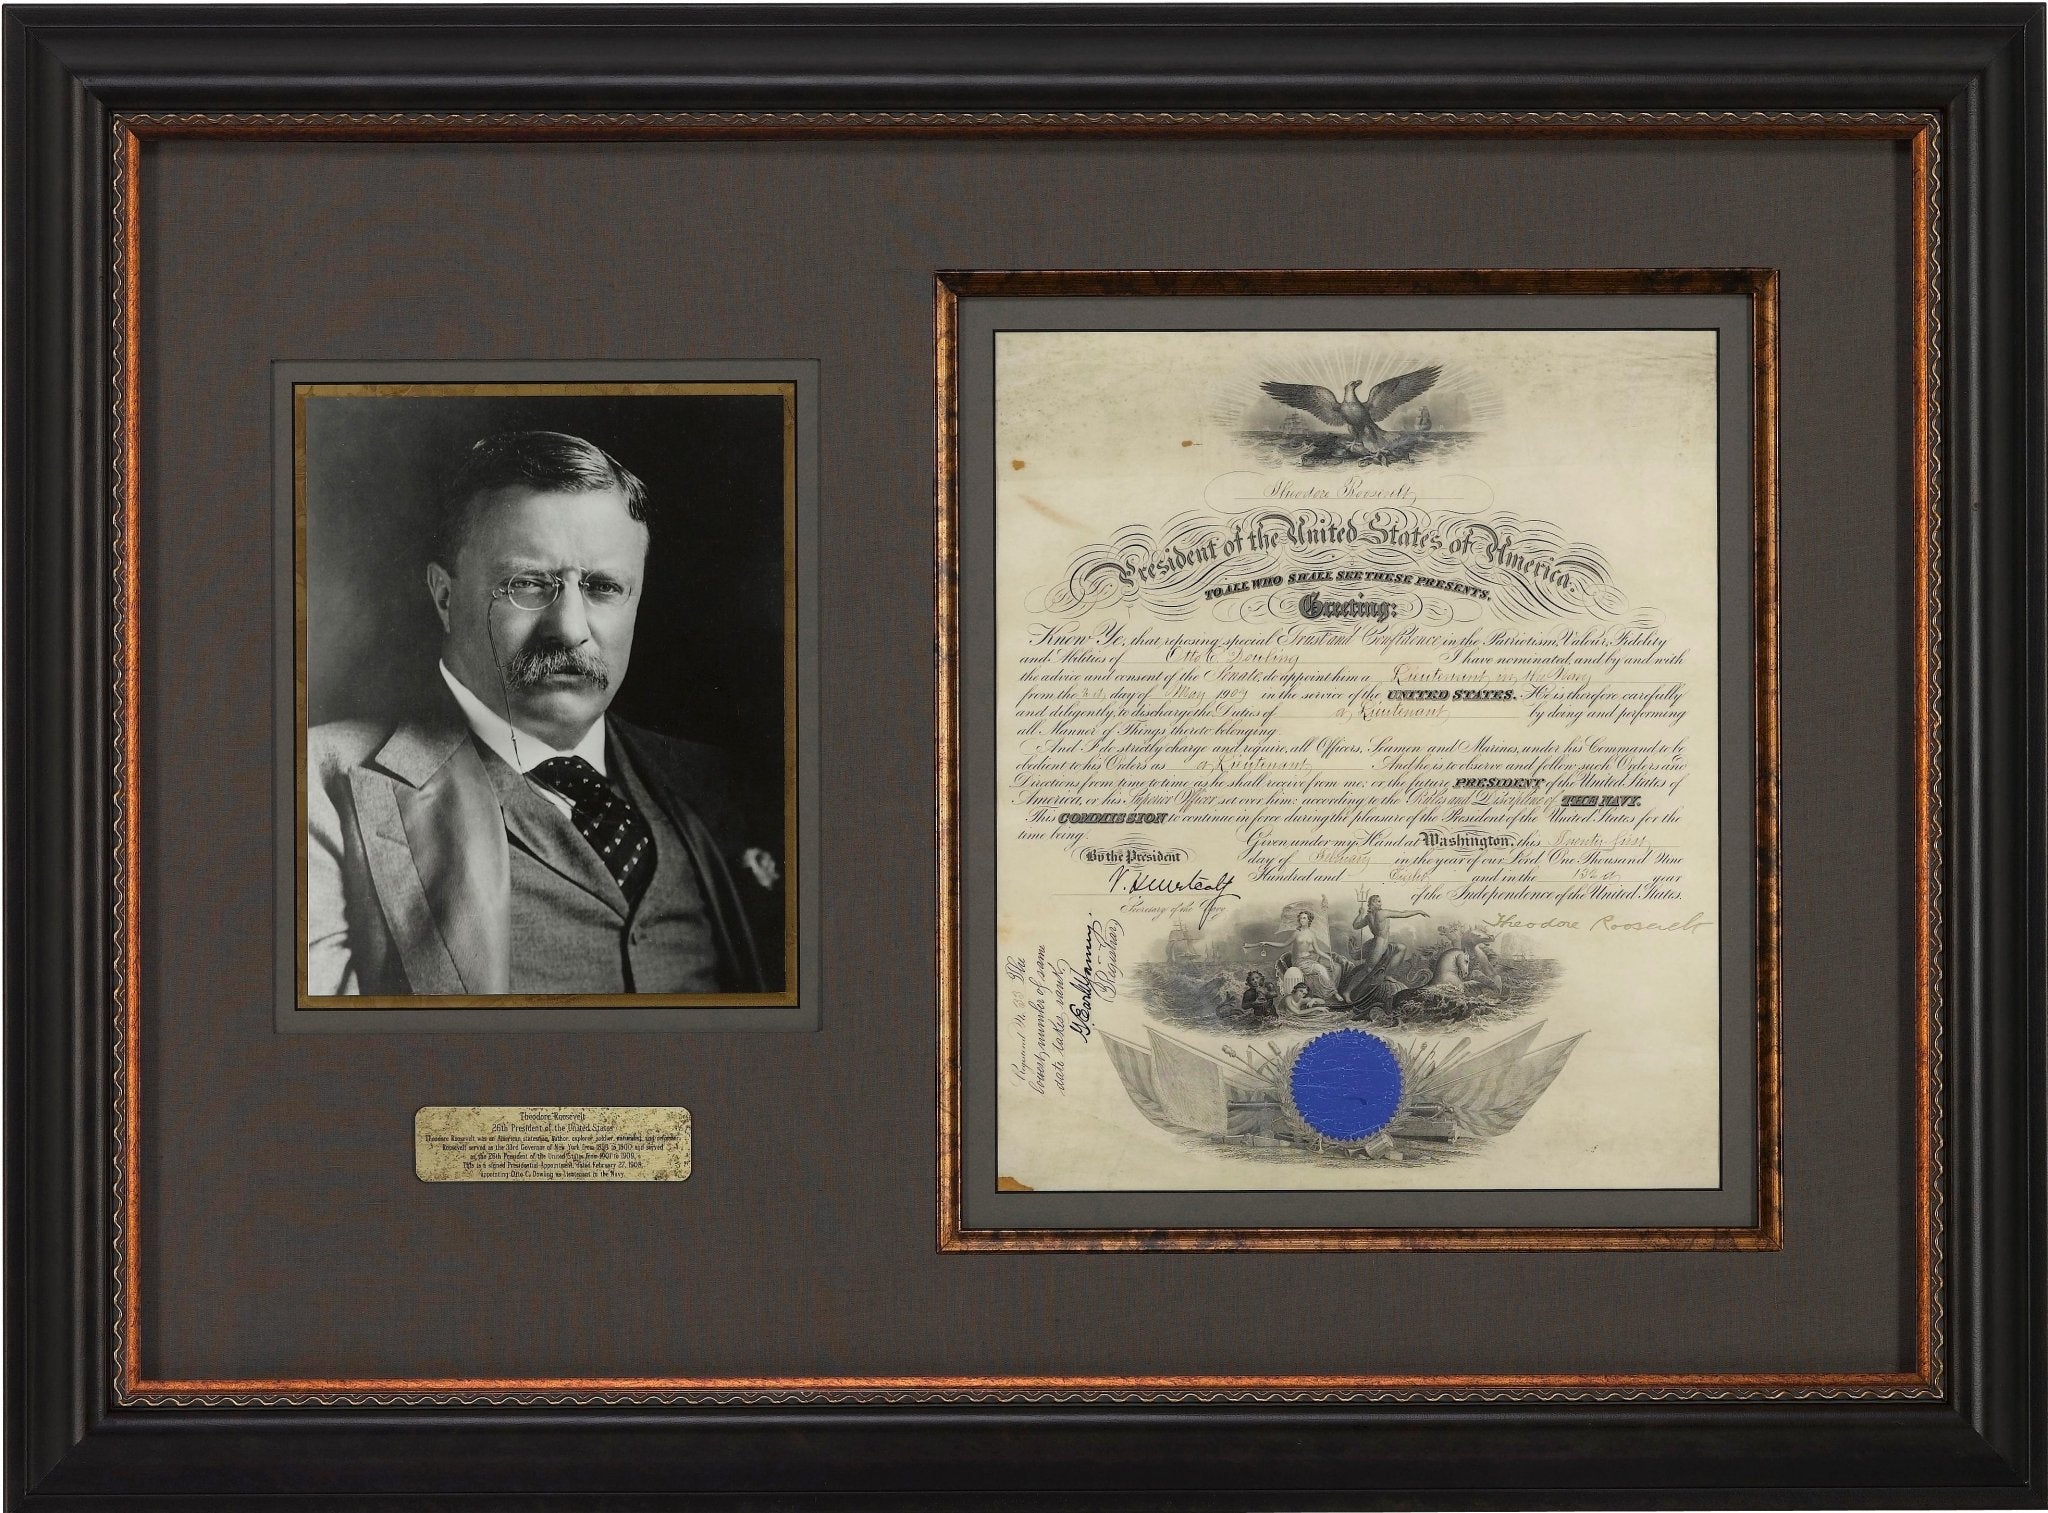 Theodore Roosevelt
26th President of the United States
Theodore Roosevelt was an American statesman, author, explorer, soldier, naturalist, and reformer.
Roosevelt served as the 33rd Governor of New York from 1899 to 1900 and served
as the 26th President of the United States from 1901 to 1909.
This is a signed Presidential Appointment, dated February 27, 1908,
appointing Otto C. Dowling as Lieutenant in the Navy.
Theodore Roosevelt,
President of the United States of America:
TO ALL WHO SHALL SEE THESE PRESENTS,
Greeting:
Know Ye, that reposing special Trust and Confidence in the Patriotism, Valour, Fidelity
and Abilities of Otto C. Dowling I have nominated, and by and with
the advice and consent of the Senate, do appoint him a Lieutenant in the Navy
from the day of May 1907 in the service of the UNITED STATES. He is therefore carefully
and diligently to discharge the Duties of a Lieutenant by doing and performing
all Manner of Things thereto belonging.
And I do strictly charge and require all Officers, Seamen and Marines, under his Command to be
obedient to his Orders as a Lieutenant And he is to observe and follow such Orders and
Directions from time to time as he shall receive from me; or the future PRESIDENT of the United States of
America, or his Superior Officer set over him; according to the Rules and Discipline of THE NAVY.
This COMMISSION to continue in force during the pleasure of the President of the United States for the
time being.
Given under my Hand at Washington, this Twenty first
day of February in the year of our Lord One Thousand Nine
Hundred and Eight and in the 132d year
of the Independence of the United States.
By the President
V. H. Metcalf
Secretary of the Navy
Theodore Roosevelt
The
lowest number of same
date takes rank
Registrar